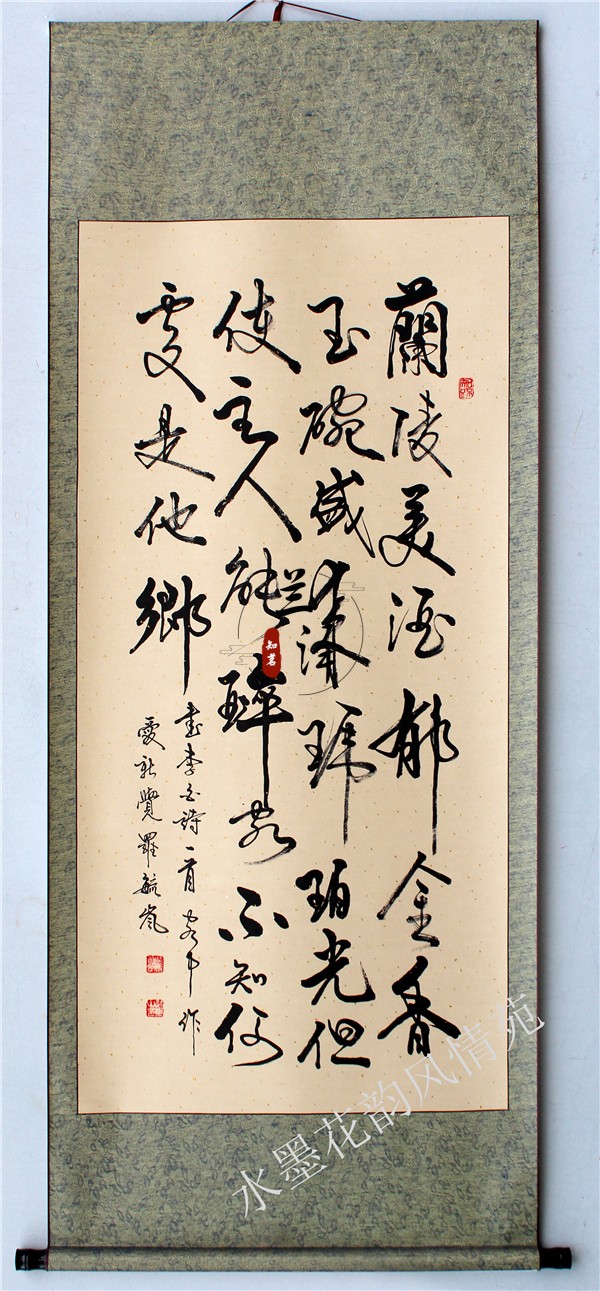 蘭陵美酒郁金香
玉碗盛来琥珀光但
使主人能醉客不知何
處是他鄉
書李白詩一首客中作
愛新覺羅毓嵐
知茗
水墨花韵风情苑